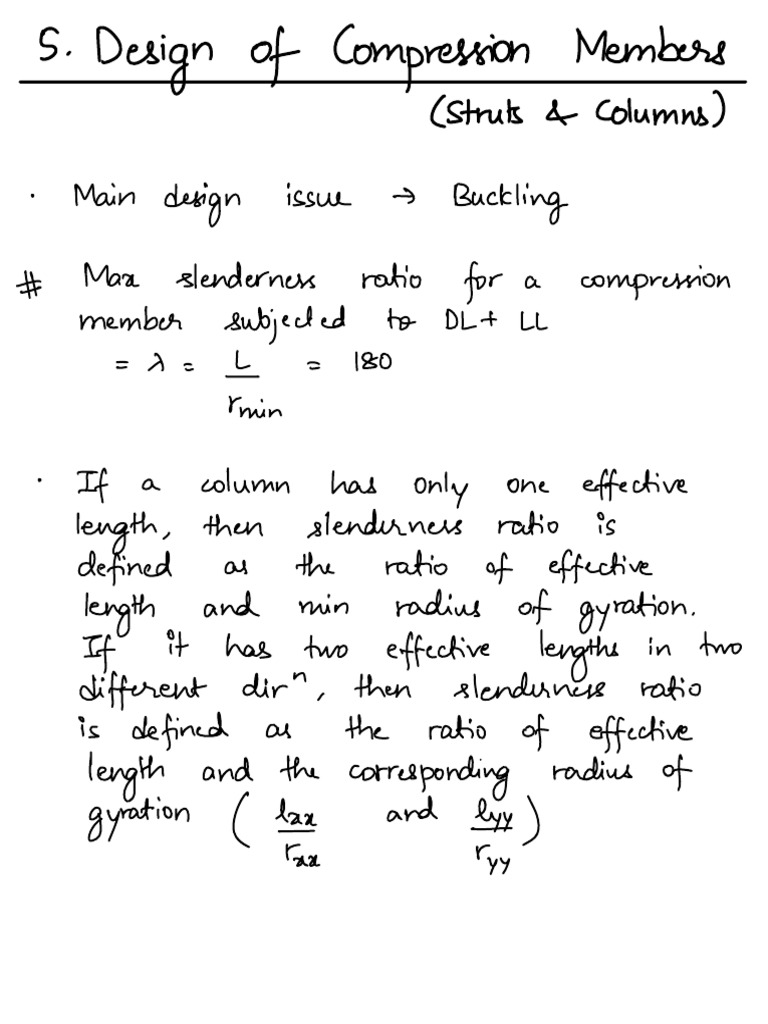 5. Design of Compression Members
(Struts & Columns)
· Main design issue → Buckling
# Max slenderness ratio for a compression
member subjected to DL + LL
= λ = L / r_min = 180
· If a column has only one effective
length, then slenderness ratio is
defined as the ratio of effective
length and min radius of gyration.
If it has two effective lengths in two
different dirⁿ, then slenderness ratio
is defined as the ratio of effective
length and the corresponding radius of
gyration ( l_xx / r_xx and l_yy / r_yy )